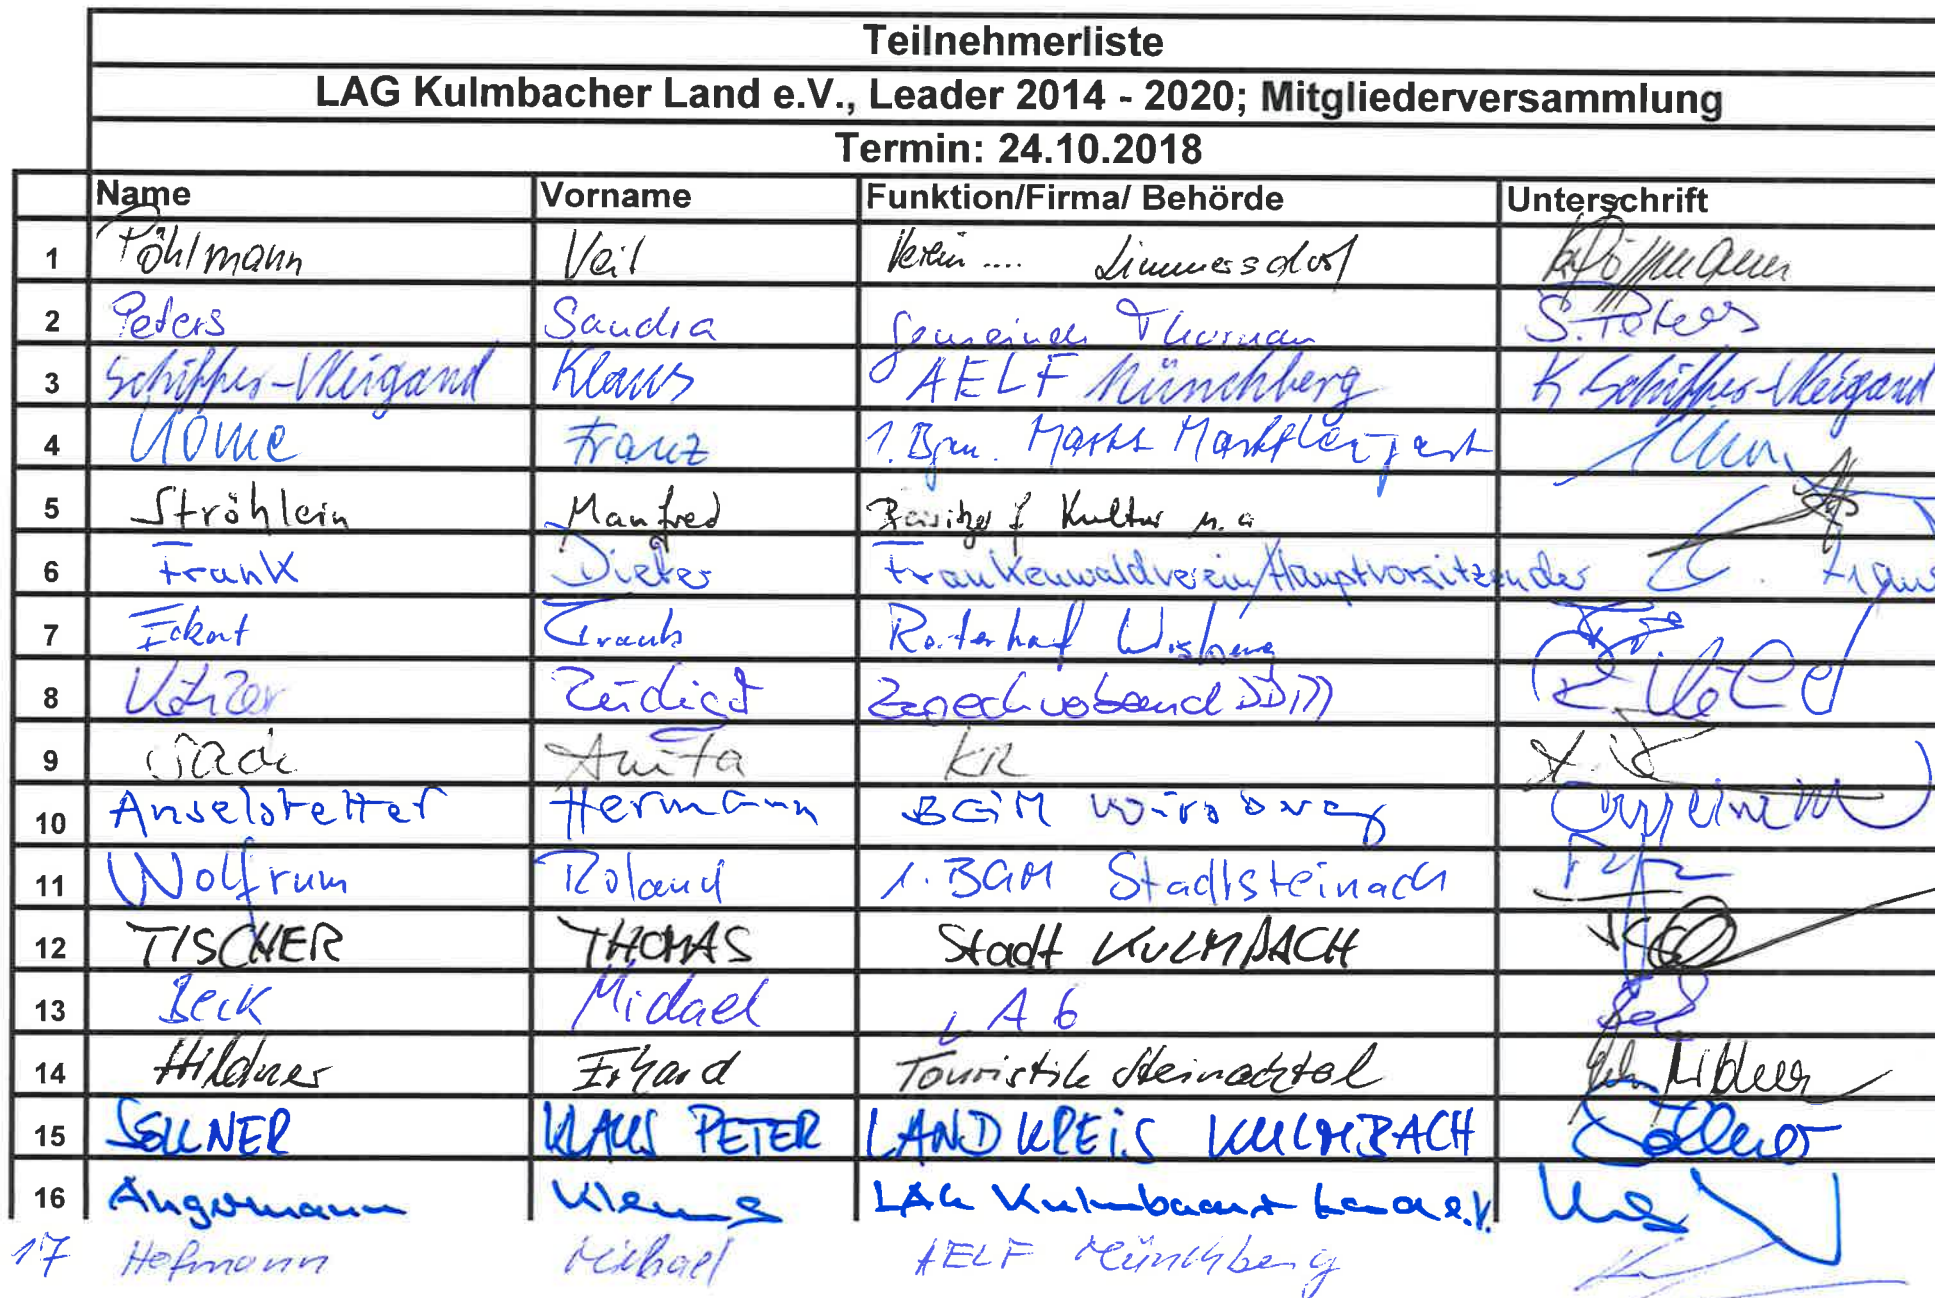 Teilnehmerliste
LAG Kulmbacher Land e.V., Leader 2014 - 2020; Mitgliederversammlung
Termin: 24.10.2018
Name Vorname Funktion/Firma/ Behörde Unterschrift
1 Pöhlmann Veit Verein .... Limmersdorf
2 Peters Sandra Gemeinde Thurnau S. Peters
3 Schiffer-Weigand Klaus AELF Münchberg K Schiffer-Weigand
4 Uome Franz 1. Bgm. Markt Marktleugast
5 Ströhlein Manfred Beisitzer f Kultur u. a
6 Frank Dieter Frankenwaldverein/Hauptvorsitzender
7 Eckart Frank Wirsberg
8 Zweckverband DDM
9 Sack Anita KR
10 Anselstetter Hermann BGM Wirsberg
11 Wolfrum Roland 1. BGM Stadtsteinach
12 TISCHER THOMAS Stadt KULMBACH
13 Beck Michael
14 Hildner Erhard Touristik Steinachtal Hildner
15 SÖLLNER KLAUS PETER LANDKREIS KULMBACH Söllner
16 Angermann Klemens LAG Kulmbacher Land e.V.
17 Hofmann Michael AELF Münchberg